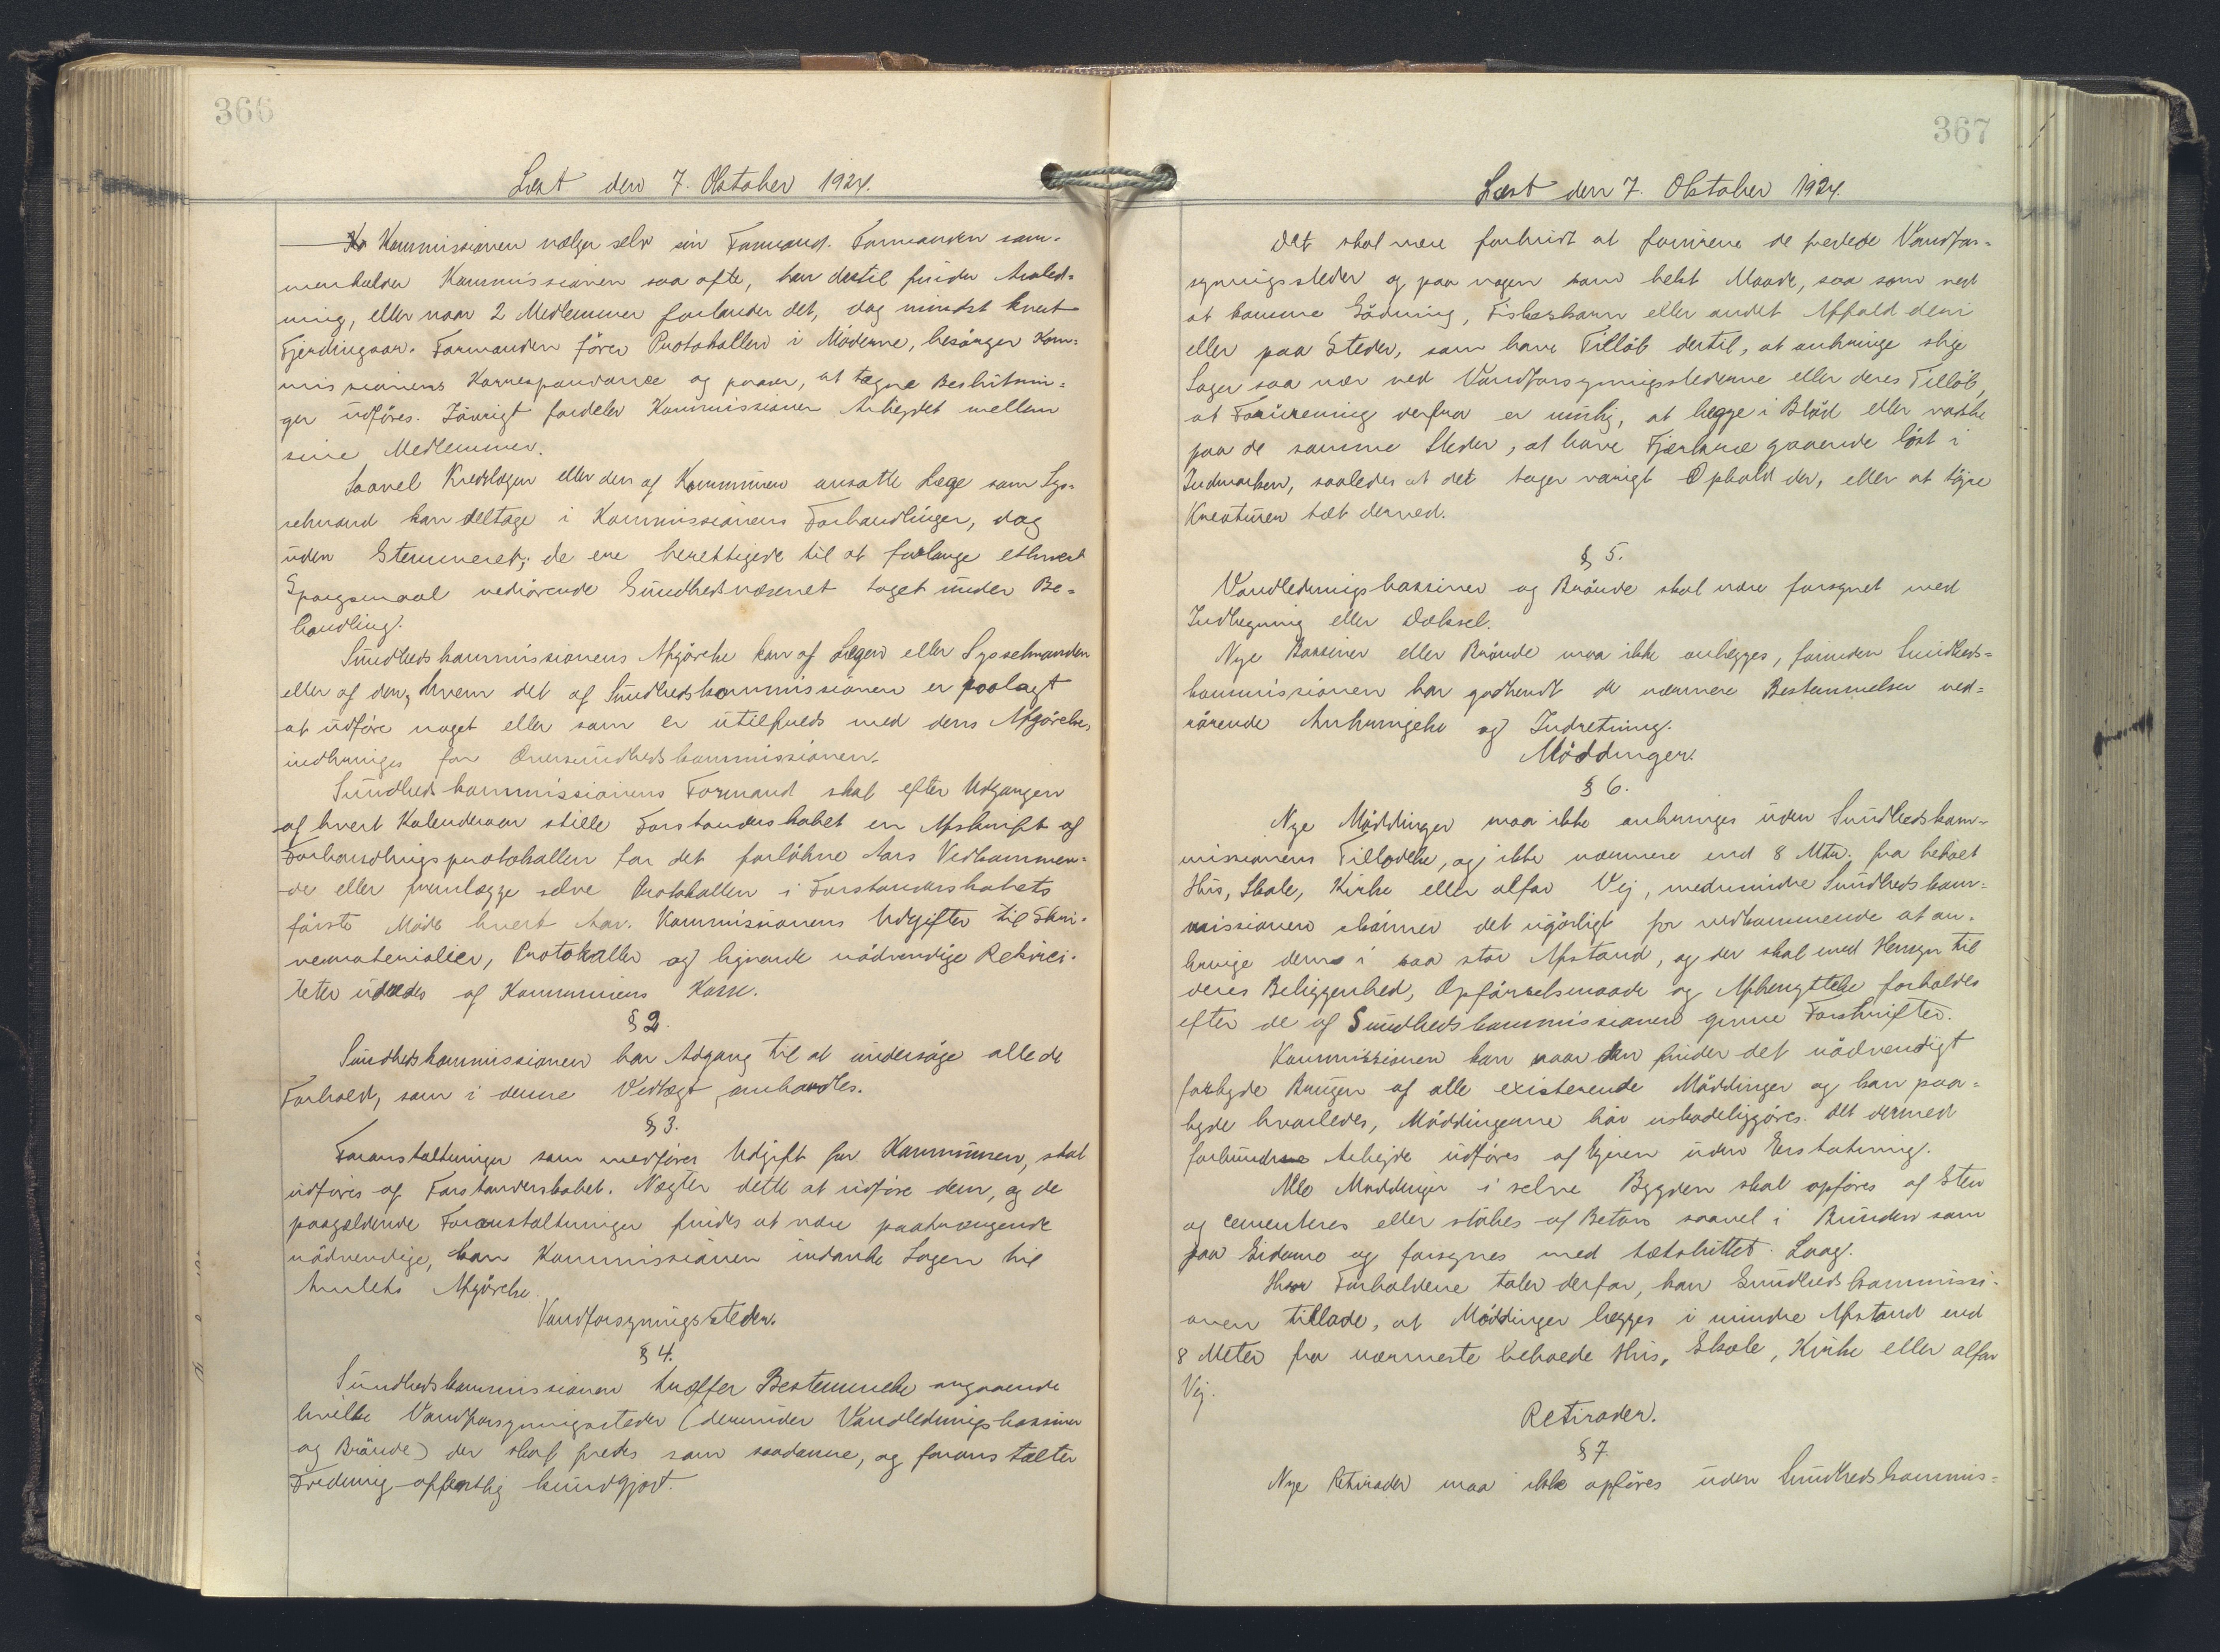 366
Læst den 7. Oktober 1924.
Ko Kommissionen vælger selv sin Formand. Formanden sam-
menkalder Kommissionen saa ofte, han dertil finder Anled-
ning, eller naar 2 Medlemmer forlanger det, dog mindst hvert
Fjerdingaar. Formanden fører Protokollen i Møderne, besørger Kom-
missionens Korrespondance og paaser, at tagne Beslutnin-
ger udføres. Iøvrigt fordeler Kommissionen Arbejdet mellem
sine Medlemmer.
Saavel Kredslægen eller den af Kommunen ansatte Læge som Sys-
selmand kan deltage i Kommissionens Forhandlinger, dog
uden Stemmeret; de ere berettigede til at forlange ethvert
Spørgsmaal vedrørende Sundhedsvæsenet taget under Be-
handling.
Sundhedskommissionens Afgørelse kan af Lægen eller Sysselmanden
eller af den, hvem det af Sundhedskommissionen er paalagt
at udføre noget eller som er utilfreds med dens Afgørelse,
indbringes for Oversundhedskommissionen.
Sundhedskommissionens Formand skal efter Udgangen
af hvert Kalenderaar stille Forstanderskabet en Afskrift af
Forhandlingsprotokollen for det forløbne Aars Vedkommen-
de eller fremlægge selve Protokollen i Forstanderskabets
første Møde hvert Aar. Kommissionens Udgifter til Skri-
vematerialier, Protokoller og lignende nødvendige Rekvisi-
teter udredes af Kommunens Kasse.
§ 2.
Sundhedskommissionen har Adgang til at undersøge alle de
Forhold, som i denne Vedtægt omhandles.
§ 3.
Foranstaltninger som medfører Udgift for Kommunen, skal
udføres af Forstanderskabet. Nægter dette at udføre dem, og de
paagældende Foranstaltninger findes at være paatrængende
nødvendige, kan Kommissionen indanke Sagen til
Amtets Afgørelse.
Vandforsyningssteder.
§ 4.
Sundhedskommissionen træffer Bestemmelse angaaende
hvilke Vandforsyningssteder (derunder Vandledningsbassiner
og Brønde) der skal fredes som saadanne, og foranstalter
Fredning offentlig kundgjort.
367
Læst den 7. Oktober 1924.
Det skal være forbudt at forurene de fredede Vandfor-
syningssteder og paa nogen som helst Maade, saa som ved
at komme Gødning, Fiskeskarn eller andet Affald deri
eller paa Steder, som have Tilløb dertil, at anbringe slige
Sager saa nær ved Vandforsyningsstederne eller deres Tilløb,
at Forurening derfra er mulig, at lægge i Blød eller vaske
paa de samme Steder, at have Fjerkræ gaaende løst i
Indmarken, saaledes at det tager varigt Ophold der, eller at tøjre
Kreaturer tæt derved.
§ 5.
Vandledningsbassiner og Brønde skal være forsynet med
Indhegning eller Dæksel.
Nye Bassiner eller Brønde maa ikke anlægges, forinden Sundheds-
kommissionen har godkendt de nærmere Bestemmelser ved-
rørende Anbringelse og Indretning.
Møddinger.
§ 6.
Nye Møddinger maa ikke anbringes uden Sundhedskom-
missionens Tilladelse, og ikke nærmere end 8 Mtr. fra beboet
Hus, Skole, Kirke eller alfar Vej, medmindre Sundhedskom-
missionen skønner det ugørligt for vedkommende at an-
bringe dem i saa stor Afstand, og der skal med Hensyn til
deres Beliggenhed, Opførselsmaade og Afbenyttelse forholdes
efter de af Sundhedskommissionen givne Forskrifter.
Kommissionen kan naar den finder det nødvendigt
forbyde Brugen af alle existerende Møddinger og kan paa-
byde hvorledes, Møddingerne bør uskadeliggøres. Det dermed
forbundne Arbejde udføres af Ejeren uden Erstatning.
Alle Møddinger i selve Bygden skal opføres af Sten
og cementeres eller støbes af Beton saavel i Bunden som
paa Siderne og forsynes med tætsluttet Laag.
Hvor Forholdene taler derfor, kan Sundhedskommissi-
onen tillade, at Møddinger lægges i mindre Afstand end
8 Meter fra nærmeste beboede Hus, Skole, Kirke eller alfar
Vej.
Retirader.
§ 7.
Nye Retirader maa ikke opføres uden Sundhedskommis-